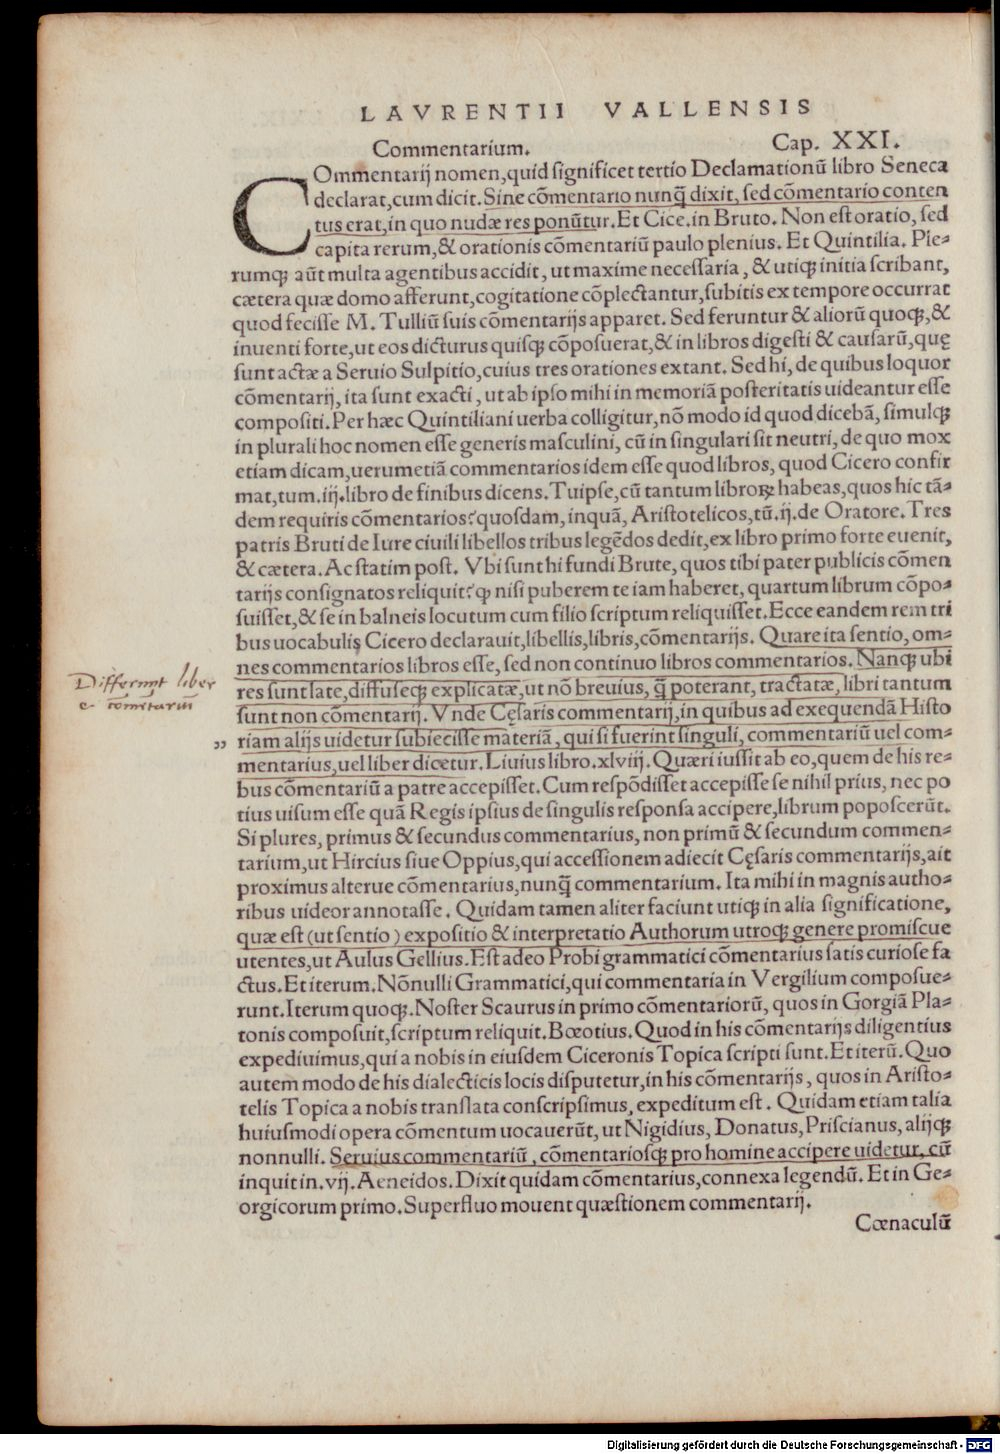 LAVRENTII VALLENSIS
Commentarium. Cap. XXI.
COmmentarij nomen, quid significet tertio Declamationū libro Seneca
declarat, cum dicit. Sine cōmentario nunq̄ dixit, sed cōmentario conten
tus erat, in quo nudæ res ponūtur. Et Cice. in Bruto. Non est oratio, sed
capita rerum, & orationis cōmentariū paulo plenius. Et Quintilia. Ple-
rumqꝫ aūt multa agentibus accidit, ut maxime necessaria, & utiqꝫ initia scribant,
cætera quæ domo afferunt, cogitatione cōplectantur, subitis ex tempore occurrat
quod fecisse M. Tulliū suis cōmentarijs apparet. Sed feruntur & aliorū quoqꝫ, &
inuenti forte, ut eos dicturus quisqꝫ cōposuerat, & in libros digesti & causarū, quę
sunt actæ a Seruio Sulpitio, cuius tres orationes extant. Sed hi, de quibus loquor
cōmentarij, ita sunt exacti, ut ab ipso mihi in memoriā posteritatis uideantur esse
compositi. Per hæc Quintiliani uerba colligitur, nō modo id quod dicebā, simulqꝫ
in plurali hoc nomen esse generis masculini, cū in singulari sit neutri, de quo mox
etiam dicam, uerumetiā commentarios idem esse quod libros, quod Cicero confir
mat, tum. iij. libro de finibus dicens. Tuipse, cū tantum libroꝝ habeas, quos hic tā-
dem requiris cōmentarios? quosdam, inquā, Aristotelicos, tū. ij. de Oratore. Tres
patris Bruti de Iure ciuili libellos tribus legēdos dedit, ex libro primo forte euenit,
& cætera. Ac statim post. Vbi sunt hi fundi Brute, quos tibi pater publicis cōmen
tarijs consignatos reliquit? ꝙ nisi puberem te iam haberet, quartum librum cōpo-
suisset, & se in balneis locutum cum filio scriptum reliquisset. Ecce eandem rem tri
bus uocabulis Cicero declarauit, libellis, libris, cōmentarijs. Quare ita sentio, om-
nes commentarios libros esse, sed non continuo libros commentarios. Nanqꝫ ubi
res sunt late, diffuseqꝫ explicatæ, ut nō breuius, q̄ poterant, tractatæ, libri tantum
sunt non cōmentarij. Vnde Cęsaris commentarij, in quibus ad exequendā Histo
riam alijs uidetur subiecisse materiā, qui si fuerint singuli, commentariū uel com-
mentarius, uel liber dicetur. Liuius libro. xlviij. Quæri iussit ab eo, quem de his re-
bus cōmentariū a patre accepisset. Cum respōdisset accepisse se nihil prius, nec po
tius uisum esse quā Regis ipsius de singulis responsa accipere, librum poposcerūt.
Si plures, primus & secundus commentarius, non primū & secundum commen-
tarium, ut Hircius siue Oppius, qui accessionem adiecit Cęsaris commentarijs, ait
proximus alterue cōmentarius, nunq̄ commentarium. Ita mihi in magnis autho-
ribus uideor annotasse. Quidam tamen aliter faciunt utiqꝫ in alia significatione,
quæ est (ut sentio) expositio & interpretatio Authorum utroqꝫ genere promiscue
utentes, ut Aulus Gellius. Est adeo Probi grammatici cōmentarius satis curiose fa
ctus. Et iterum. Nōnulli Grammatici, qui commentaria in Vergilium composue-
runt. Iterum quoqꝫ. Noster Scaurus in primo cōmentariorū, quos in Gorgiā Pla-
tonis composuit, scriptum reliquit. Bœotius. Quod in his cōmentarijs diligentius
expediuimus, qui a nobis in eiusdem Ciceronis Topica scripti sunt. Et iterū. Quo
autem modo de his dialecticis locis disputetur, in his cōmentarijs, quos in Aristo-
telis Topica a nobis translata conscripsimus, expeditum est. Quidam etiam talia
huiusmodi opera cōmentum uocauerūt, ut Nigidius, Donatus, Priscianus, alijqꝫ
nonnulli. Seruius commentariū, cōmentariosqꝫ pro homine accipere uidetur, cū
inquit in. vij. Aeneidos. Dixit quidam cōmentarius, connexa legendū. Et in Ge-
orgicorum primo. Superfluo mouent quæstionem commentarij.
Cœnaculū
Differunt liber
et comētariū
Digitalisierung gefördert durch die Deutsche Forschungsgemeinschaft - DFG